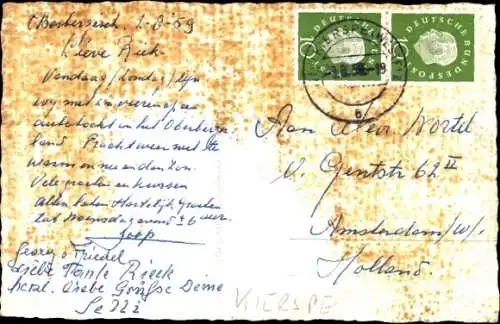 2-8-59
Lieve Riek
Vandaag Zondag zijn
wij met z'n vieren op een
autotocht in het Oberberg
land. Prachtweer met
warm en nu en dan zon.
Vele groeten en kussen
allen hartelijk groeten
tot Woensdagavond ± 6 uur.
Joop
Georg u Friedel
Liebe Tante Rieck
herzl. Liebe Grüße Deine
DEUTSCHE BUNDESPOST
10
DEUTSCHE BUNDESPOST
10
b
Aan
Gentstr 62 II
Amsterdam/W/.
Holland.
KIERSPE